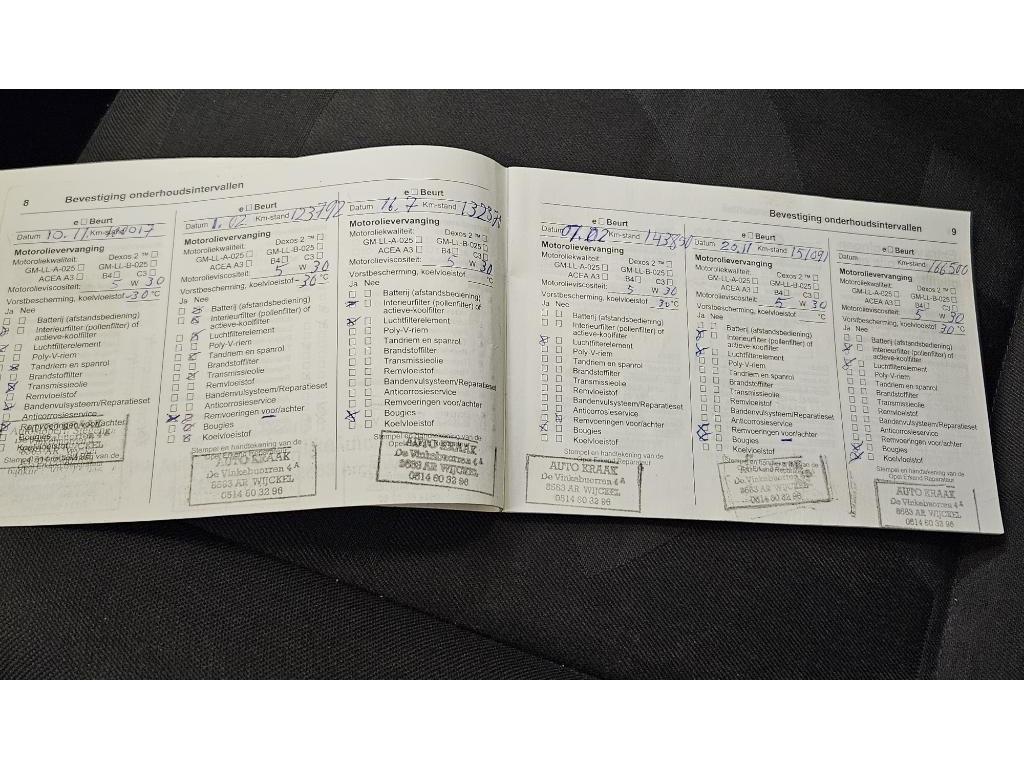 8 Bevestiging onderhoudsintervallen
e Beurt
Datum 10.11 Km-stand 2017
Motorolievervanging
Motoroliekwaliteit: Dexos 2 ™
GM-LL-A-025 GM-LL-B-025
ACEA A3 B4 C3
Motorolieviscositeit: 5 W 30
Vorstbescherming, koelvloeistof -30 °C
Ja Nee
Batterij (afstandsbediening)
Interieurfilter (pollenfilter) of
actieve-koolfilter
Luchtfilterelement
Poly-V-riem
Tandriem en spanrol
Brandstoffilter
Transmissieolie
Remvloeistof
Bandenvulsysteem/Reparatieset
Anticorrosieservice
Remvoeringen voor/achter
Bougies
e Beurt
Datum 1.02 Km-stand 123792
Motorolievervanging
Motoroliekwaliteit: Dexos 2 ™
GM-LL-A-025 GM-LL-B-025
ACEA A3 B4 C3
Motorolieviscositeit: 5 W 30
Vorstbescherming, koelvloeistof -36 °C
Ja Nee
Batterij (afstandsbediening)
Interieurfilter (pollenfilter) of
actieve-koolfilter
Luchtfilterelement
Poly-V-riem
Tandriem en spanrol
Brandstoffilter
Transmissieolie
Remvloeistof
Bandenvulsysteem/Reparatieset
Anticorrosieservice
Remvoeringen voor/achter
Bougies
Koelvloeistof
Stempel en handtekening van de
AUTO KRAAK
De Vinkebuorren 4A
8563 AR WIJCKEL
0514 60 32 96
e Beurt
Datum 16.7 Km-stand
Motorolievervanging
Motoroliekwaliteit: Dexos 2 ™
GM-LL-A-025 GM-LL-B-025
ACEA A3 B4 C3
Motorolieviscositeit: 5 W 30
Vorstbescherming, koelvloeistof °C
Ja Nee
Batterij (afstandsbediening)
Interieurfilter (pollenfilter) of
actieve-koolfilter
Luchtfilterelement
Poly-V-riem
Tandriem en spanrol
Brandstoffilter
Transmissieolie
Remvloeistof
Bandenvulsysteem/Reparatieset
Anticorrosieservice
Remvoeringen voor/achter
Bougies
Koelvloeistof
Stempel en handtekening van de
AUTO KRAAK
De Vinkebuorren 4A
8563 AR WIJCKEL
0514 60 32 96
Bevestiging onderhoudsintervallen 9
e Beurt
Datum 07.02 Km-stand 143850
Motorolievervanging
Motoroliekwaliteit: Dexos 2 ™
GM-LL-A-025 GM-LL-B-025
ACEA A3 B4 C3
Motorolieviscositeit: 5 W 30
Vorstbescherming, koelvloeistof -30 °C
Ja Nee
Batterij (afstandsbediening)
Interieurfilter (pollenfilter) of
actieve-koolfilter
Luchtfilterelement
Poly-V-riem
Tandriem en spanrol
Brandstoffilter
Transmissieolie
Remvloeistof
Bandenvulsysteem/Reparatieset
Anticorrosieservice
Remvoeringen voor/achter
Bougies
Koelvloeistof
Stempel en handtekening van de
Opel Erkend Reparateur
AUTO KRAAK
De Vinkebuorren 4A
8563 AR WIJCKEL
0514 60 32 96
e Beurt
Datum 20.11 Km-stand 151091
Motorolievervanging
Motoroliekwaliteit: Dexos 2 ™
GM-LL-A-025 GM-LL-B-025
ACEA A3 B4 C3
Motorolieviscositeit: 5 W 30
Vorstbescherming, koelvloeistof °C
Ja Nee
Batterij (afstandsbediening)
Interieurfilter (pollenfilter) of
actieve-koolfilter
Luchtfilterelement
Poly-V-riem
Tandriem en spanrol
Brandstoffilter
Transmissieolie
Remvloeistof
Bandenvulsysteem/Reparatieset
Anticorrosieservice
Remvoeringen voor/achter
Bougies
Koelvloeistof
Stempel en handtekening van de
De Vinkebuorren 4A
8563 AR WIJCKEL
0514 60 32 96
e Beurt
Datum Km-stand 166500
Motorolievervanging
Motoroliekwaliteit: Dexos 2 ™
GM-LL-A-025 GM-LL-B-025
ACEA A3 B4 C3
Motorolieviscositeit: 5 W 30
Vorstbescherming, koelvloeistof 30 °C
Ja Nee
Batterij (afstandsbediening)
Interieurfilter (pollenfilter) of
actieve-koolfilter
Luchtfilterelement
Poly-V-riem
Tandriem en spanrol
Brandstoffilter
Transmissieolie
Remvloeistof
Bandenvulsysteem/Reparatieset
Anticorrosieservice
Remvoeringen voor/achter
Bougies
Koelvloeistof
Stempel en handtekening van de
Opel Erkend Reparateur
AUTO KRAAK
De Vinkebuorren 4A
8563 AR WIJCKEL
0514 60 32 96